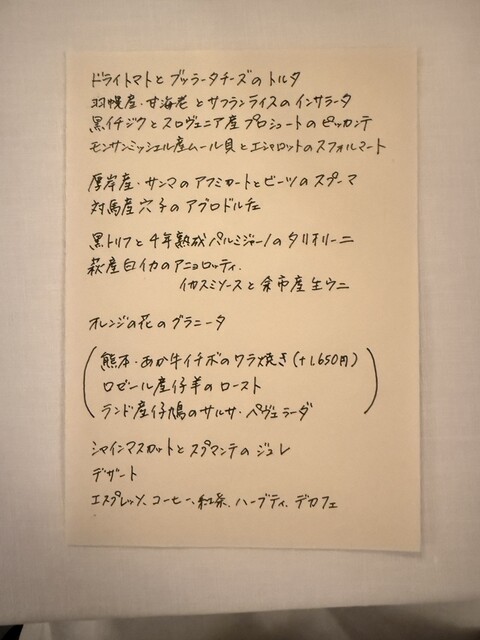 ドライトマトとブッラータチーズのトルタ
羽幌産・甘海老とサフランライスのインサラータ
黒イチジクとスロヴェニア産プロシュートのピッカンテ
モンサンミッシェル産ムール貝とエシャロットのスフォルマート
厚岸産・サンマのアフミカートとビーツのスプーマ
対馬産穴子のアグロドルチェ
黒トリフと4年熟成パルミジャーノのタリオリーニ
萩産白イカのアニョロッティ.
イカスミソースと余市産生ウニ
オレンジの花のグラニータ
熊本・あか牛イチボのワラ焼き(+1,650円)
ロゼール産仔羊のロースト
ランド産仔鳩のサルサ・ペヴェラーダ
シャインマスカットとスプマンテのジュレ
デザート
エスプレッソ、コーヒー、紅茶、ハーブティ、デカフェ